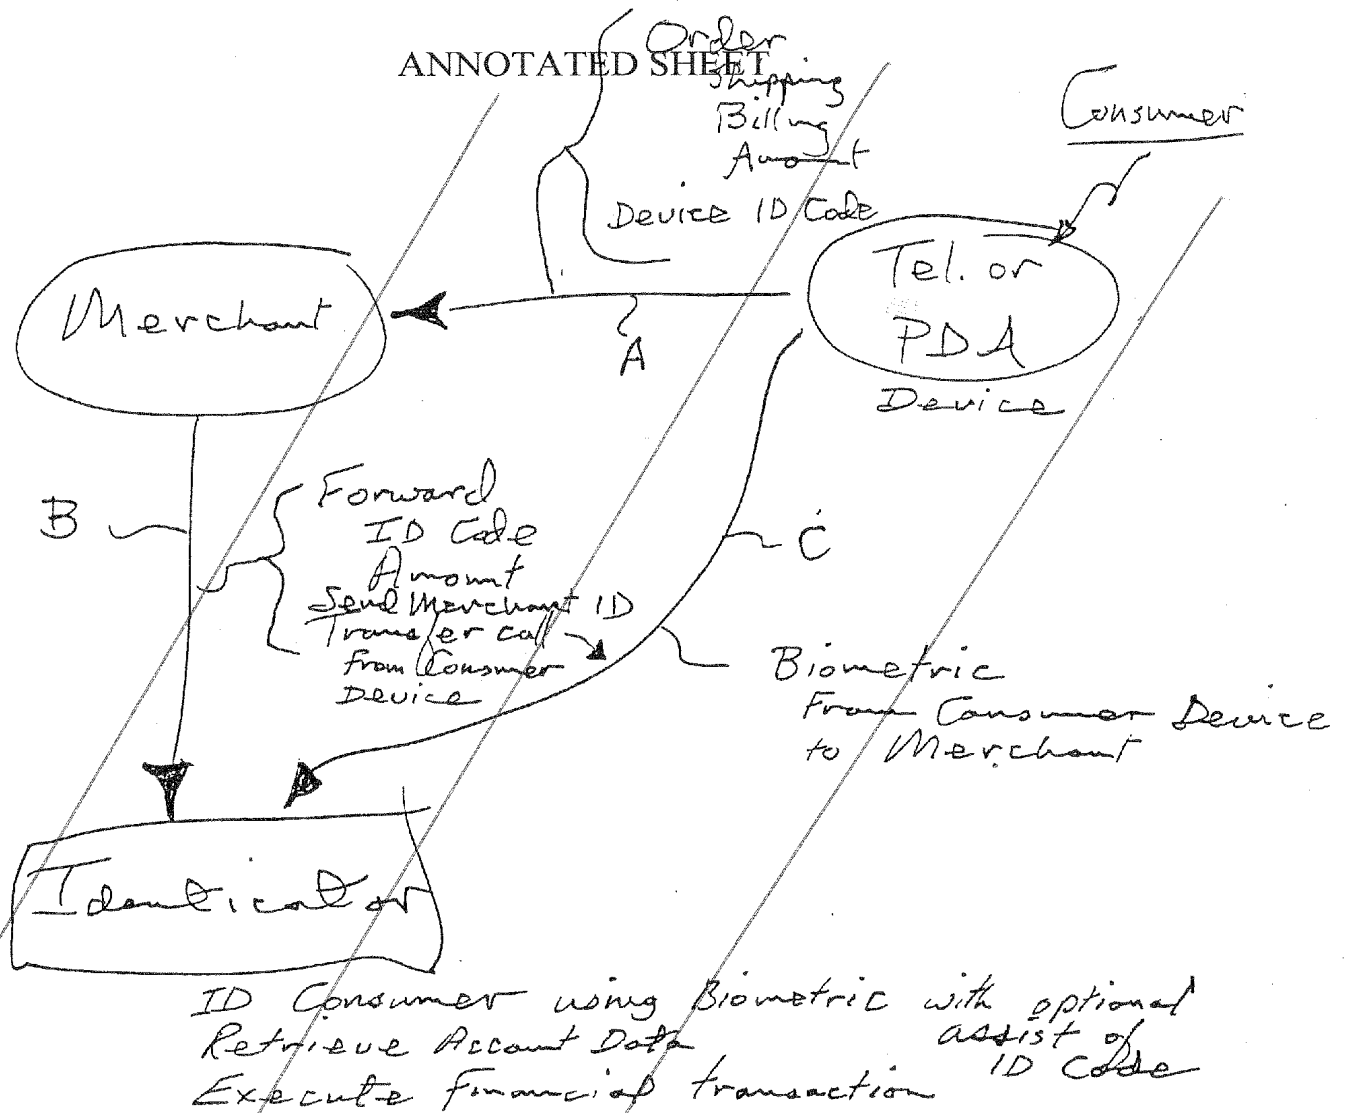 Order
ANNOTATED SHEET
Shipping
Billing
Amount
Device ID Code
Consumer
Tel. or
PDA
Device
Merchant
A
B
Forward
ID Code
Amount
Send Merchant ID
Transfer call
from Consumer
Device
C
Biometric
From Consumer Device
to Merchant
Identicator
ID Consumer using Biometric with optional
assist of
ID Code
Retrieve Account Data
Execute Financial transaction